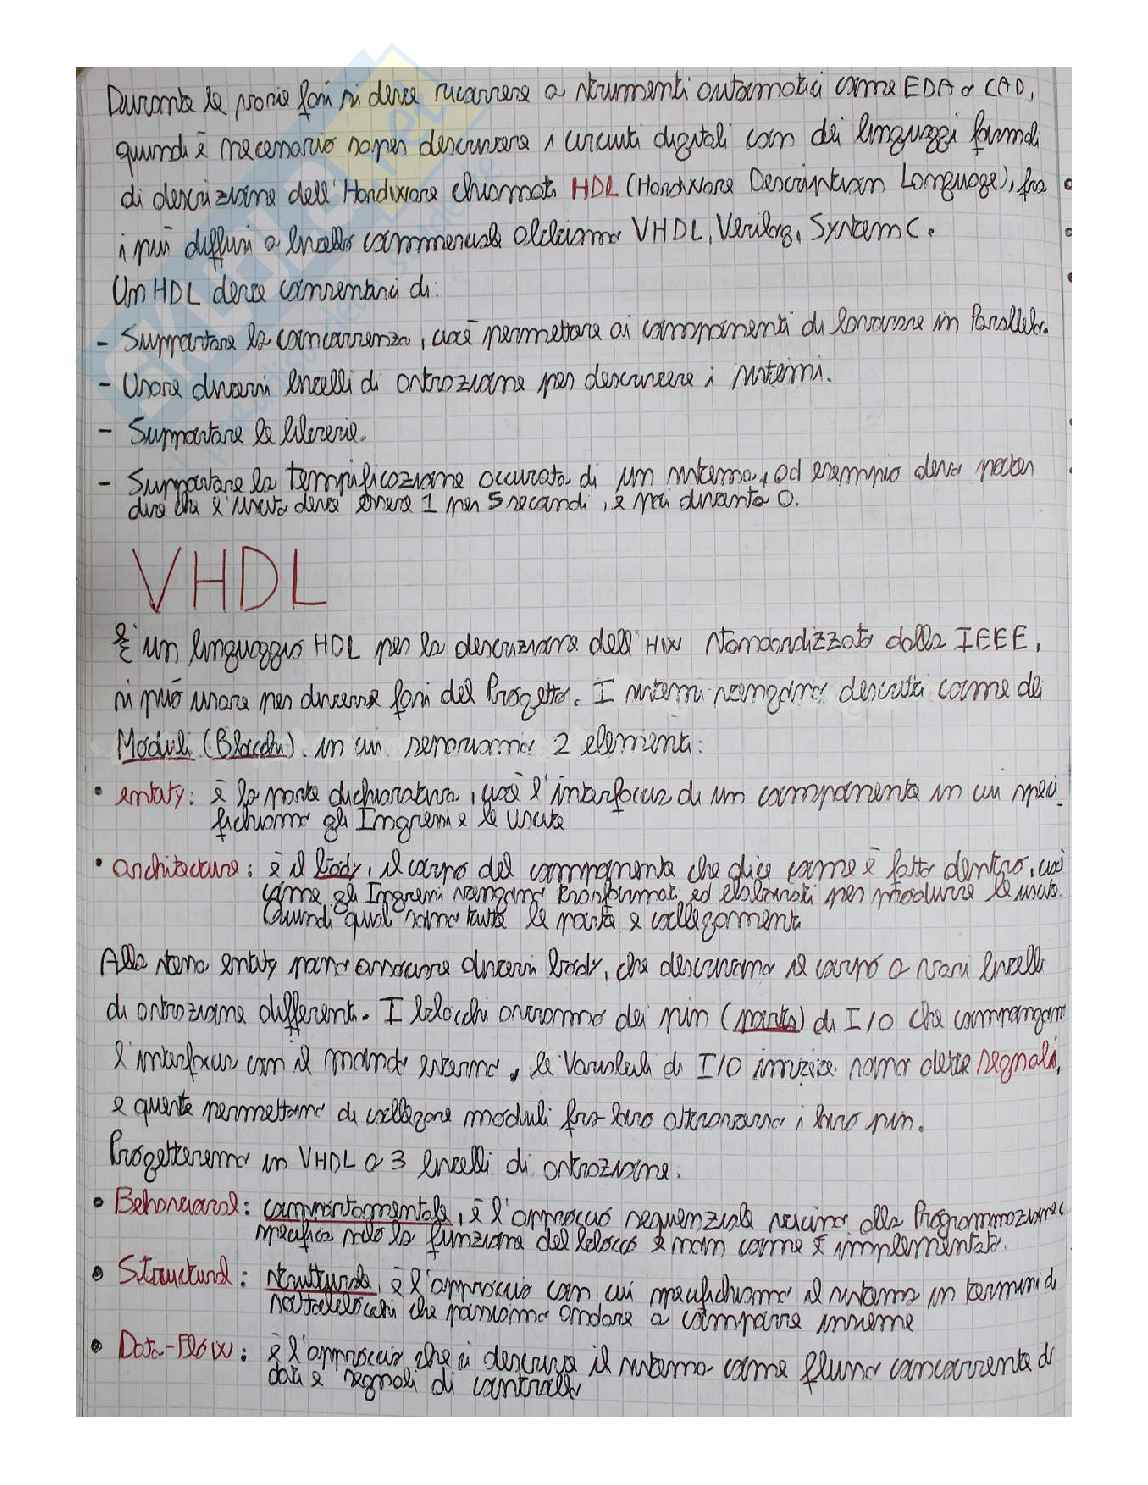 Durante le varie fasi si deve ricorrere a strumenti automatici come EDA o CAD,
quindi è necessario saper descrivere i circuiti digitali con dei linguaggi formali
di descrizione dell'Hardware chiamati HDL (Hardware Description Language), fra
i più diffusi a livello commerciale abbiamo VHDL, Verilog, SystemC.
Un HDL deve consentirci di:
- Supportare la concorrenza, cioè permettere ai componenti di lavorare in Parallelo.
- Usare diversi livelli di astrazione per descrivere i sistemi.
- Supportare le librerie.
- Supportare la tempificazione accurata di un sistema, ad esempio devo poter
dire che l'uscita deve essere 1 per 5 secondi, e poi diventa 0.
VHDL
È un linguaggio HDL per la descrizione dell'HW standardizzato dalla IEEE,
si può usare per diverse fasi del Progetto. I sistemi vengono descritti come dei
Moduli (Blocchi). in cui separiamo 2 elementi:
• entaty: è la parte dichiarativa, cioè l'interfaccia di un componente in cui speci_
fichiamo gli Ingressi e le uscite
• architecture: è il body, il corpo del componente che dice come è fatto dentro, cioè
come gli Ingressi vengono trasformati ed elaborati per produrre le uscite.
Quindi quali sono tutte le porte e collegamenti
Alla stessa entaty posso associare diversi body, che descrivono il corpo a vari livelli
di astrazione differenti. I blocchi avranno dei pin (ports) di I/O che compongono
l'interfaccia con il mondo esterno, le Variabili di I/O invece sono dette segnali,
e queste permettono di collegare moduli fra loro attraverso i loro pin.
Progetteremo in VHDL a 3 livelli di astrazione.
• Behavioral: comportamentale, è l'approccio sequenziale vicino alla Programmazione
specifica solo la funzione del blocco e non come è implementato.
• Structural: strutturale, è l'approccio con cui specifichiamo il sistema in termini di
sottoblocchi che possiamo andare a comporre insieme
• Data-Flow: è l'approccio che ci descrive il sistema come flusso concorrente di
dati e segnali di controllo